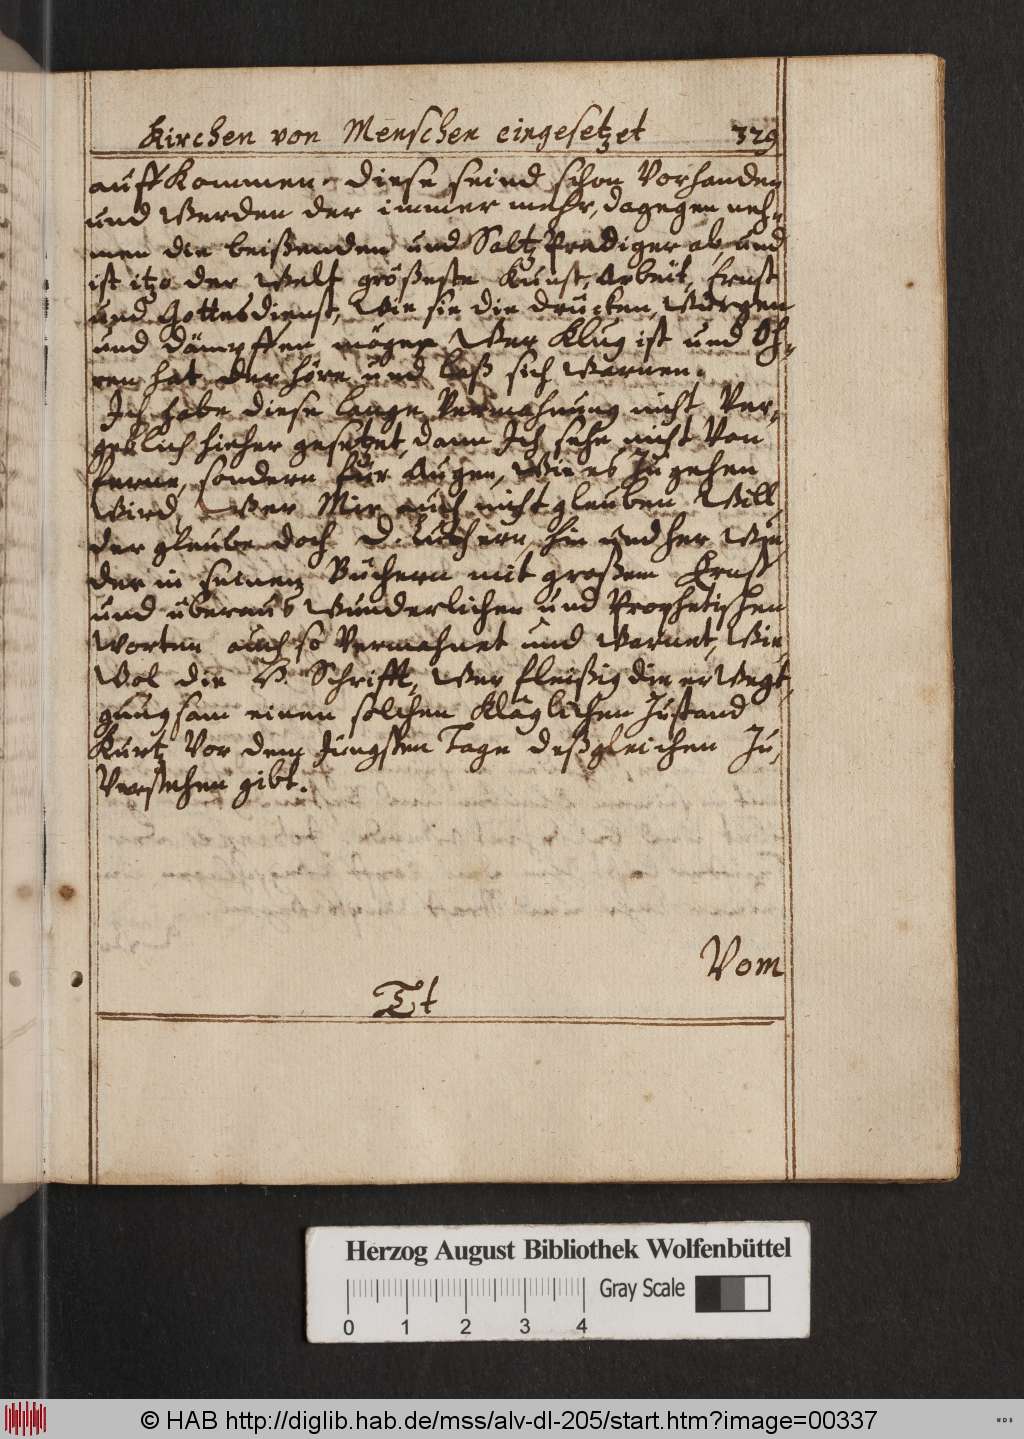 Kirchen von Menschen eingesetzet 329
auffkommen. diese seind schon Vorhanden
und Werden der immer mehr, dagegen neh-
men die beißenden und Saltz Prediger ab, und
ist itzo der Welt größeste Kunst, Arbeit, Ernst
und Gottesdienst, Wie sie die drücken, Würgen
und dämpffen mögen Wer Klug ist und Oh-
ren hat der höre, und laß sich Warnen.
Ich habe diese lange Vermahnung nicht Ver-
geblich hieher gesetzet, dann Ich sehe nicht Von
ferne, sondern für Augen, Wie es Zugehen
Wird, Wer Mir auch nicht glauben Will,
der glaube doch D. Luthern, hin und her Wie
der in seinen Büchern mit großem Ernst
und überaus Wunderlichen und Prophetischen
Worten auch so Vermahnet und Warnet, Wie
Wol die H. Schrifft, Wer fleißig die erWegt,
gungsam einen solchen Kläglichen Zustand
Kurtz Vor dem Jüngsten Tage deßgleichen Zu
Verstehen gibt.
Vom
Tt
Herzog August Bibliothek Wolfenbüttel
Gray Scale
0 1 2 3 4
© HAB http://diglib.hab.de/mss/alv-dl-205/start.htm?image=00337